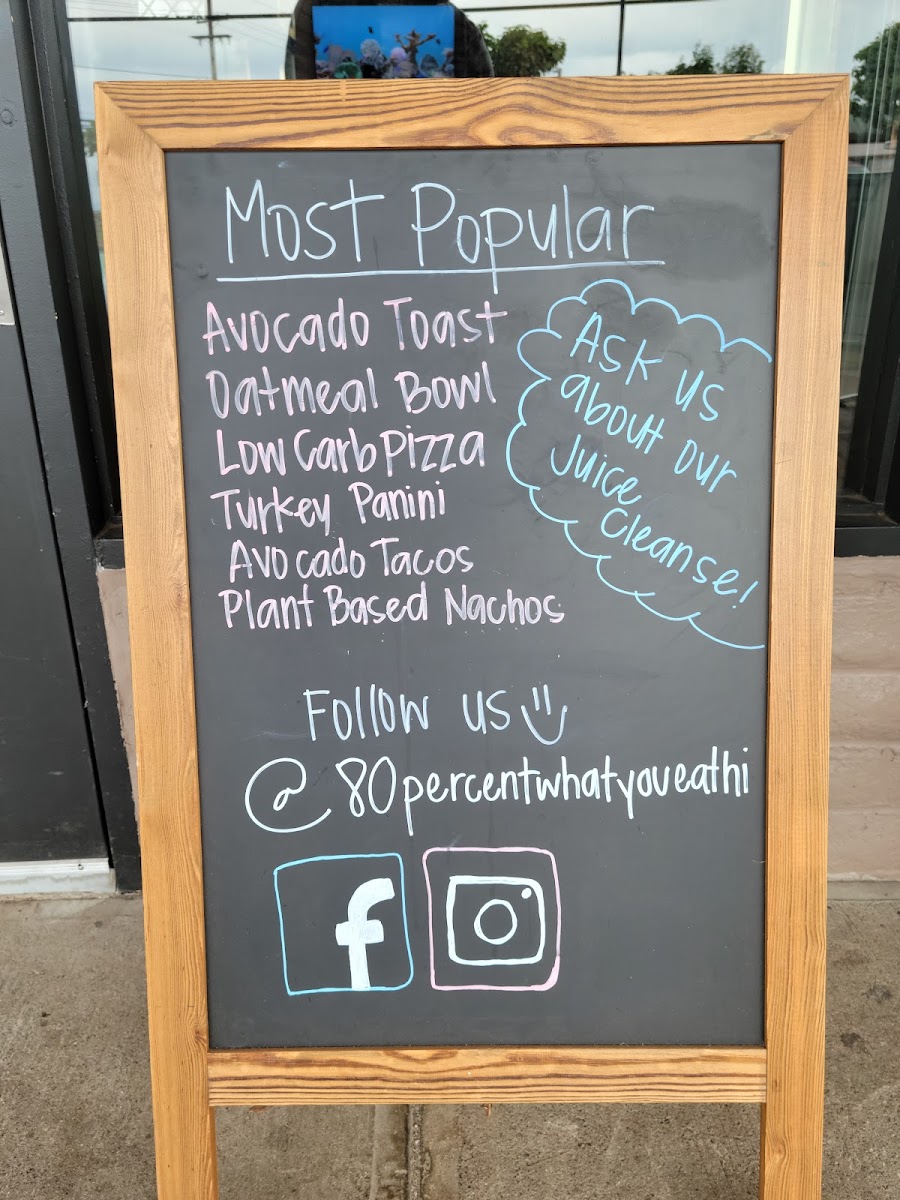 Most Popular
Avocado Toast
Oatmeal Bowl
Low Carb Pizza
Turkey Panini
Avocado Tacos
Plant Based Nachos
Ask us
about our
Juice
Cleanse!
Follow us
@80percentwhatyoueathi
f